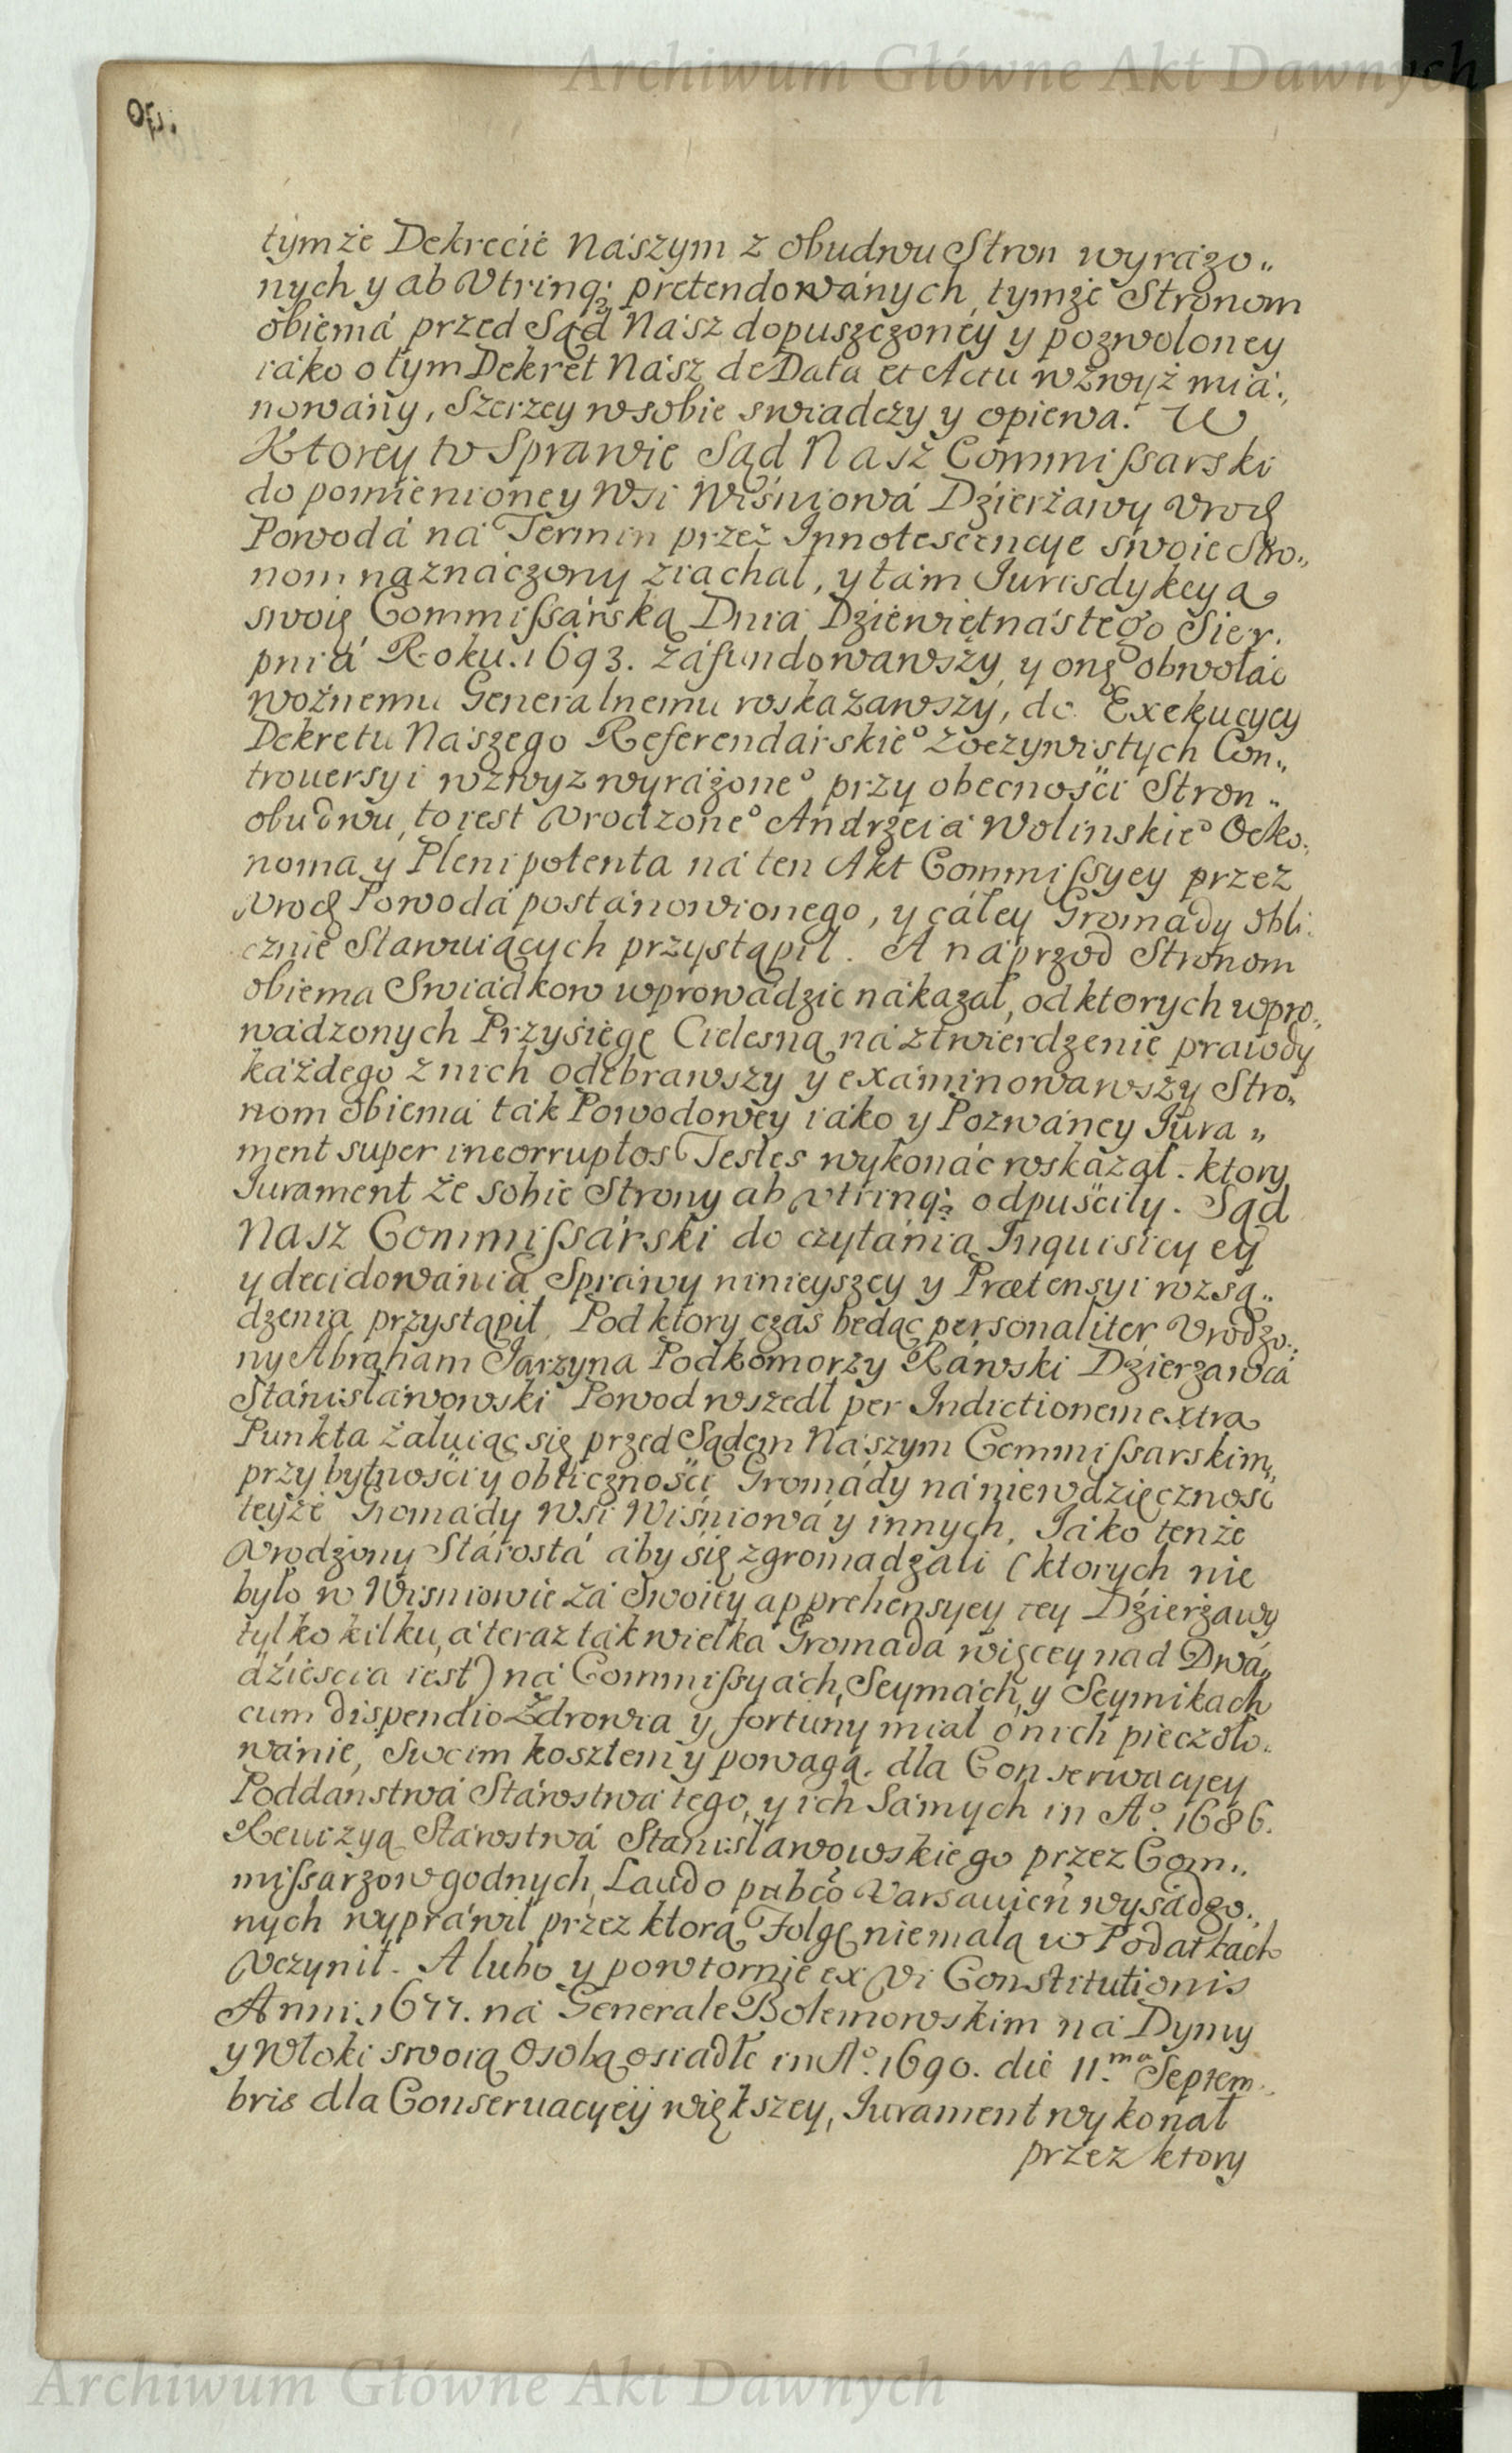 Archiwum Główne Akt Dawnych
tymże Dekrecie Nászym z obudwu Stron wyrażo„
nych y ab Vtrinq; pretendowánych, tymże Stronom
obiemá przed Sąd Nász dopuszczoney y pozwoloney
iáko o tym Dekret Nász de Data et Actu wzwyż miá„
nowány, Szerzey w sobie swiadczy y opiewa. W
Ktorey to Sprawie Sąd Nasz Commißarski
do pomienioney Wsi Wiśniowá Dzierżawy Vrod
Powodá ná Termin przez Innotescencye swoie Stro„
nom náznáczony ziachał, y tám Jurisdykcyą
swoię Commißárską Dnia Dziewiętnástego Sier.
pniá Roku. 1693. záfundowáwszy, y onę obwołáć
woźnemu Generalnemu roskazawszy, do Exekucyey
Dekretu Nászego Referendárskie° zoczywistych Con„
trouersyi wzwyz wyráżone° przy obecnośći Stron„
obudwu, to iest Vrodzone° Andrzeiá Wolinskie° Oeko„
noma y Plenipotenta ná ten Akt Commißyey przez
Vrod Powodá postánowionego, y cáłey Gromády obli„
cznie Stawaiących przystąpił. A náprzod Stronom
obiema Swiádkow wprowádzić nákazał, od ktorych wpro„
wádzonych Przyśięgę Cielesną ná ztwierdzenie prawdy
káżdego z nich odebrawszy y exáminowawszy Stro„
nom obiemá ták Powodowey iáko y Pozwáney Jura„
ment super incorruptos Testes wykonáć roskázał. ktory
Jurament że sobie Strony ab vtrinq; odpuśćiły. Sąd
Nasz Commißárski do czytánia Inquisicyey
y decidowánia Spráwy ninieyszey y Prætensyi rozsą„
dzenia przystąpił, Pod ktory czás będąc personaliter Vrodzo„
ny Abraham Jarzyna Podkomorzy Ráwski Dzierzawcá
Stánisłáwowski Powod wszedł per Indictionem extra
Punkta żáłuiąc się przed Sądem Nászym Commißarskim,
przy bytnośći y obliczności Gromády ná niewdzięczność
teyże Gromády Wsi Wiśniowá y innych, Jáko tenże
Vrodzony Stárostá áby się zgromadzáli (ktorych nie
było w Wisniowie zá Swoiey apprehensyey tey Dzierżawy
tylko kilku, á teraz ták wielka Gromáda więcey nad Dwá„
dzieścia iest) ná Commißyách, Seymách, y Seymikach
cum dispendio Zdrowia y fortuny miał o nich pieczoło„
wánie, Swoim kosztem y powagą. dla Conserwacyey
Poddanstwá Stárostwá tego, y ich Sámych in A°. 1686.
Rewizyą Stárostwá Stanisłáwowskiego przez Com„
mißarzow godnych, Laudo pubco Varsauien wysádzo„
nych wypráwił przez ktorą Folgę niemáłą w Podatkach
Vczynił. A lubo y powtornie ex Vi Constitutionis
Anni. 1677. ná Generale Bolemowskim ná Dymy
y Włoki swoią Osobą osiadłe in A°. 1690. die 11.ma Septem„
bris dla Conseruacyey większey, Jurament wykonał
przez ktory
Archiwum Główne Akt Dawnych